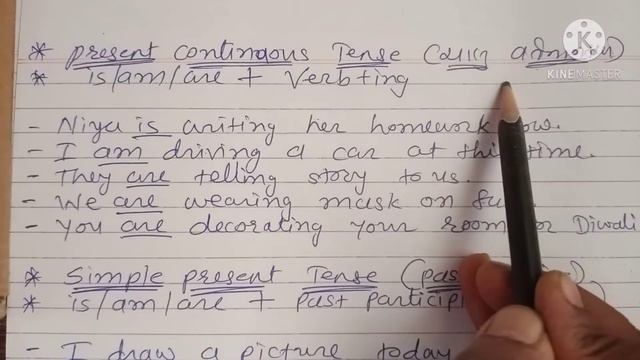 * present continuous Tense (चालू
KINEMASTER
* is/am/are + Verb+ing
- Niya is writing her homework
- I am driving a car at this time.
- They are telling story to us.
- We are wearing mask on
- You are decorating your room Diwali
* Simple present Tense (
* is/am/are + past
- I draw a picture today